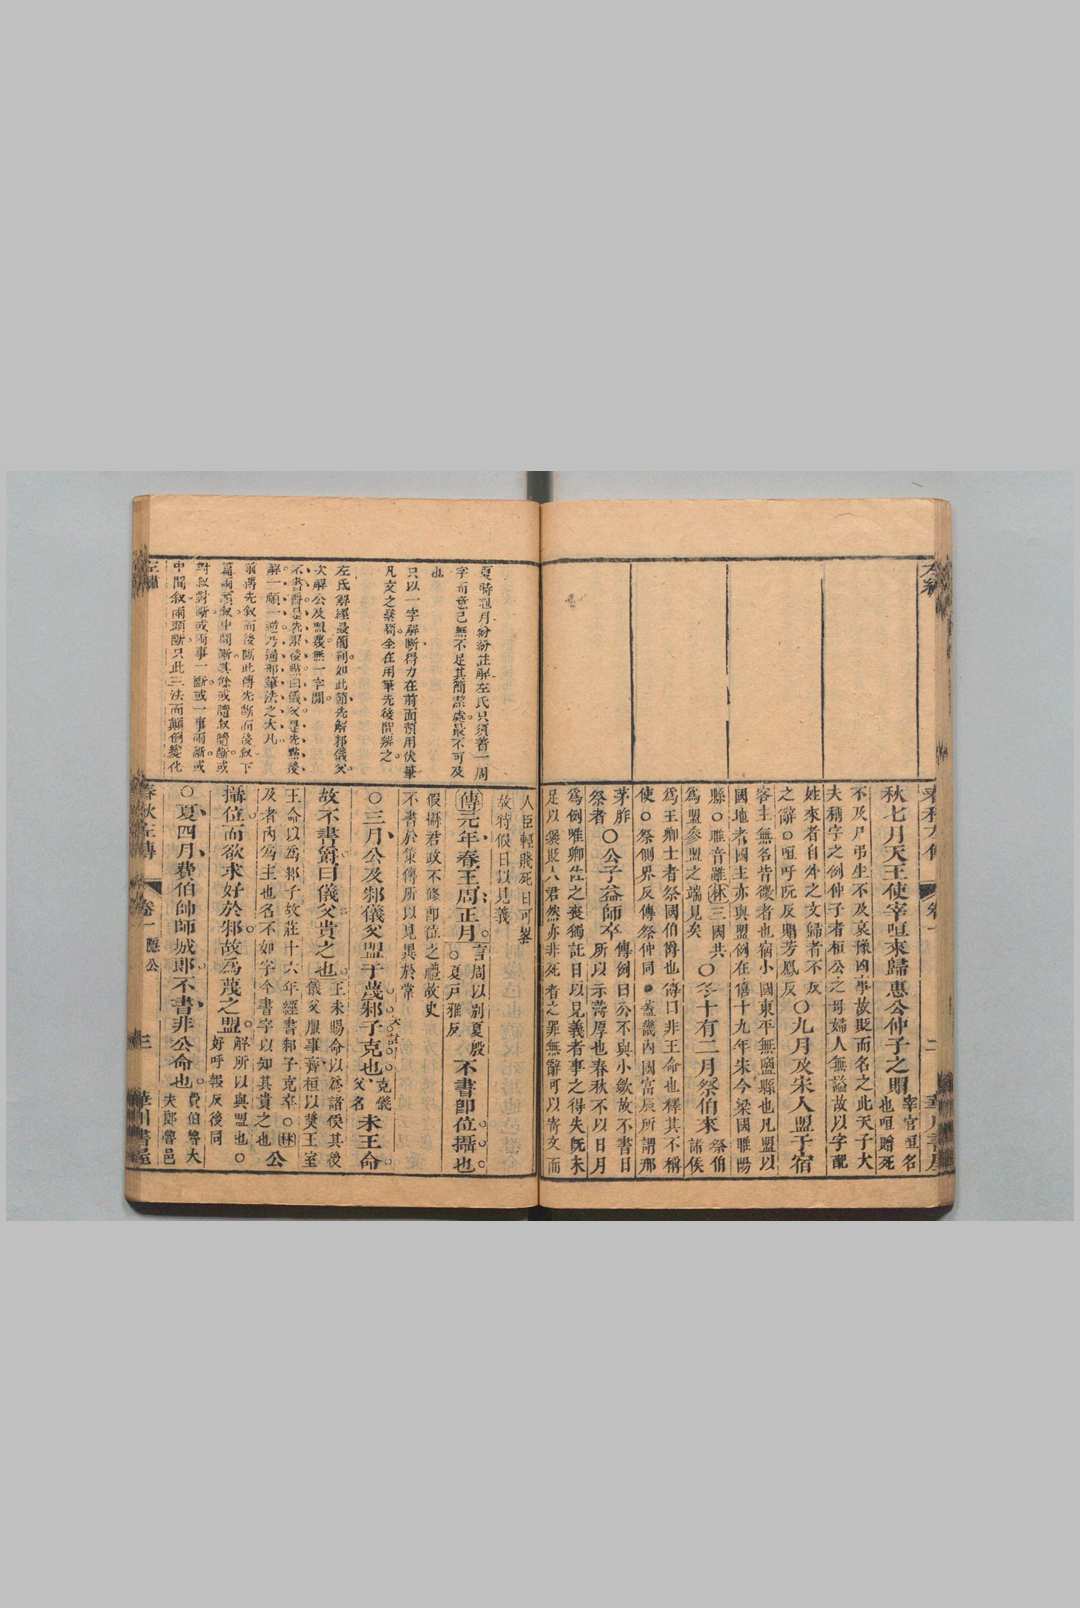 秋七月天王使宰咺來歸惠公仲子之賵
宰官咺名
也咺贈死
不及尸弔生不及哀豫凶事故貶而名之此天子大
夫稱字之例仲子者桓公之母婦人無謚故以字配
姓來者自外之文歸者不反
之辭○咺吁阮反賵芳鳳反
○九月及宋人盟于宿
客主無名皆微者也宿小國東平無鹽縣也凡盟以
國地者國主亦與盟例在僖十九年宋今梁國睢陽
縣○睢音雖林三國共
爲盟參盟之端見矣
○冬十有二月祭伯來
祭伯
諸侯
爲王卿士者祭國伯爵也傳曰非王命也釋其不稱
使○祭側界反傳祭仲同
茅胙
祭者
○公子益師卒
傳例曰公不與小斂故不書日
所以示薄厚也春秋不以日月
爲例唯卿佐之喪獨託日以見義者事之得失旣未
足以襃貶人君然亦非死者之罪無辭可以寄文而
人臣輕賤死日可畧
故特假日以見義
傳元年春王周正月
言周以别夏殷
○夏戸雅反
不書卽位攝也
假攝君政不修卽位之禮故史
不書於策傳所以見異於常
○三月公及邾儀父盟于蔑邾子克也
克儀
父名
未王命
故不書爵曰儀父貴之也
王未賜命以爲諸侯其後
儀父服事齊桓以奬王室
王命以爲邾子故莊十六年經書邾子克卒○林
及者内爲主也名不如字今書字以知其貴之也
公
攝位而欲求好於邾故爲蔑之盟
解所以與盟也○
好呼報反後同
○夏四月費伯帥師城郎不書非公命也
費伯魯大
夫郎魯邑
夏時冠月紛紛註解左氏只須著一周
字而意已無不足其簡潔處最不可及
也
只以一字解斷得力在前面預用伏筆
凡文之繁簡全在用筆先後間辨之
左氏解經最簡到如此節先解邾儀父
次解公及盟蔑無一字閒
不書爵是先案後點曰儀父是先點後
解一順一逆乃通部筆法之大凡
前傳先敘而後斷此傳先斷而後敘下
篇兩頭敘中間斷其餘或隨敘隨斷或
對敘對斷或兩事一斷或一事兩斷或
中間敘兩頭斷只此三法而顛倒變化
左繡
春秋左傳
卷一
隱公
三
華川書屋